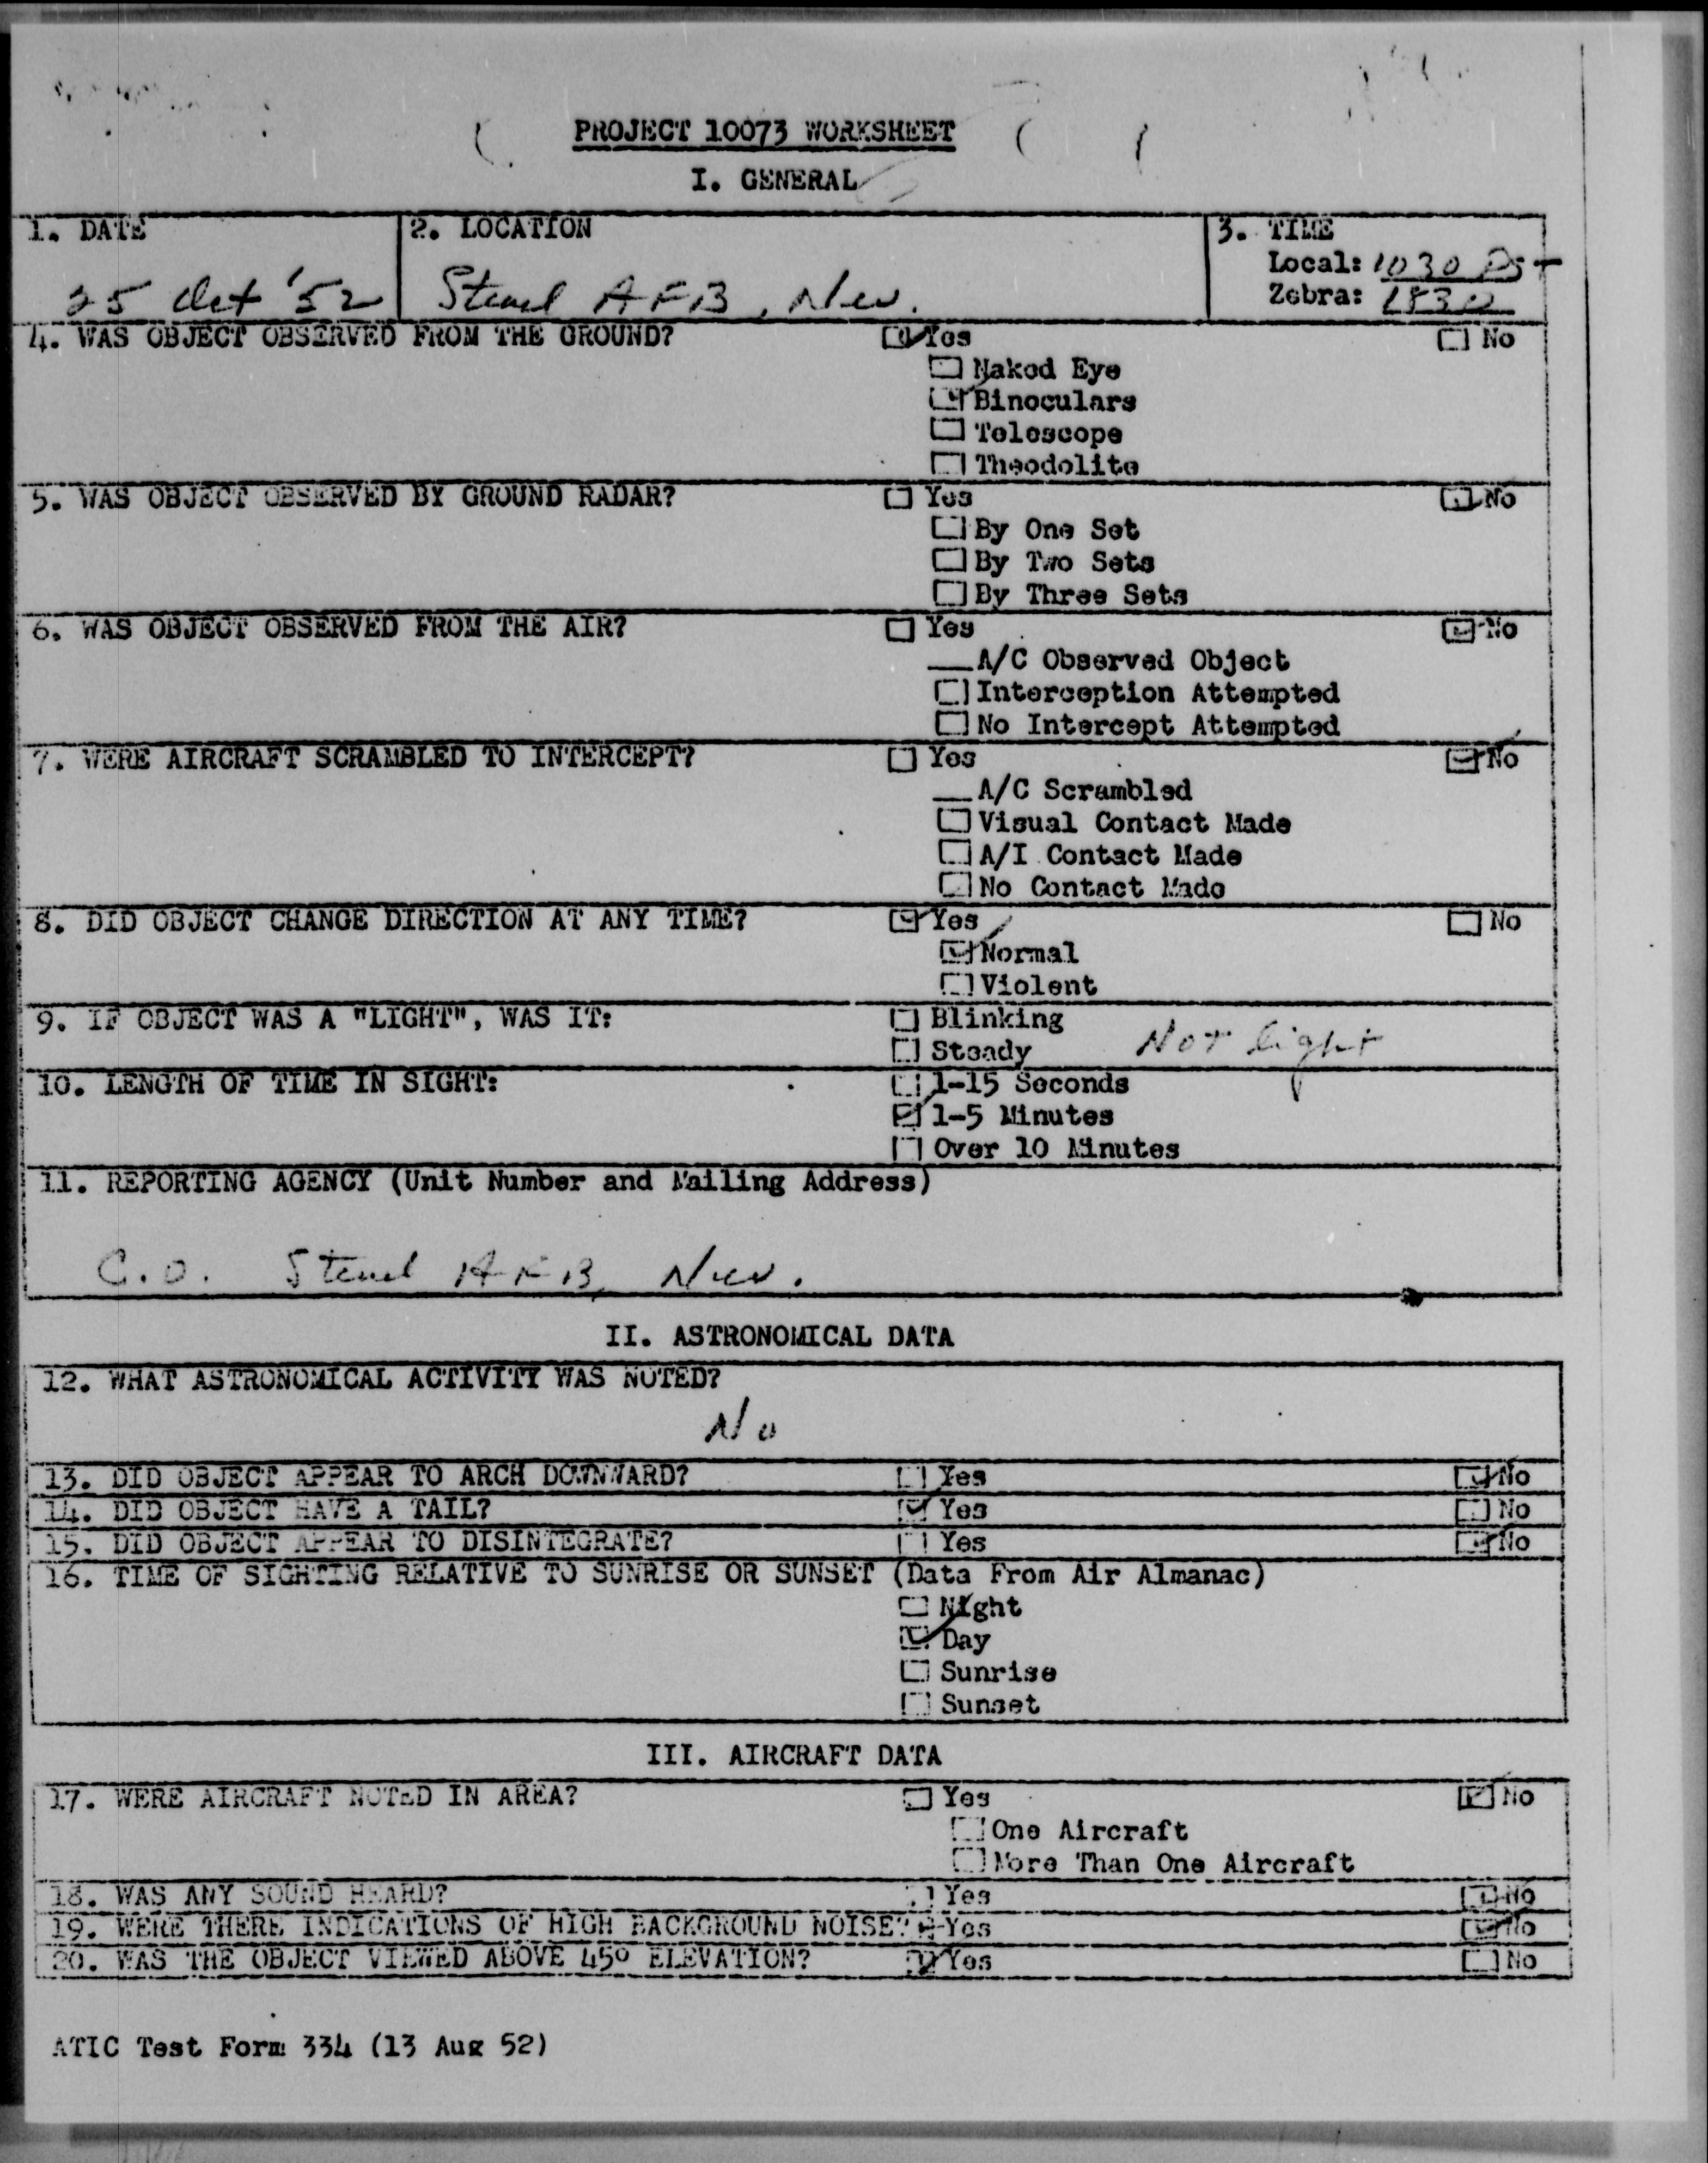 PROJECT 10073 WORKSHEET
I. GENERAL
1. DATE
25 Oct '52
2. LOCATION
Stead AFB, Nev.
3. TIME
Local: 1030 PST
Zebra: 1830
4. WAS OBJECT OBSERVED FROM THE GROUND? ☑ Yes ☐ No
☐ Naked Eye
☑ Binoculars
☐ Telescope
☐ Theodolite
5. WAS OBJECT OBSERVED BY GROUND RADAR? ☐ Yes ☑ No
☐ By One Set
☐ By Two Sets
☐ By Three Sets
6. WAS OBJECT OBSERVED FROM THE AIR? ☐ Yes ☑ No
__ A/C Observed Object
☐ Interception Attempted
☐ No Intercept Attempted
7. WERE AIRCRAFT SCRAMBLED TO INTERCEPT? ☐ Yes ☑ No
__ A/C Scrambled
☐ Visual Contact Made
☐ A/I Contact Made
☐ No Contact Made
8. DID OBJECT CHANGE DIRECTION AT ANY TIME? ☑ Yes ☐ No
☑ Normal
☐ Violent
9. IF OBJECT WAS A "LIGHT", WAS IT: ☐ Blinking
☐ Steady Not light
10. LENGTH OF TIME IN SIGHT: ☐ 1-15 Seconds
☑ 1-5 Minutes
☐ Over 10 Minutes
11. REPORTING AGENCY (Unit Number and Mailing Address)
C.O. Stead AFB, Nev.
II. ASTRONOMICAL DATA
12. WHAT ASTRONOMICAL ACTIVITY WAS NOTED?
No
13. DID OBJECT APPEAR TO ARCH DOWNWARD? ☐ Yes ☑ No
14. DID OBJECT HAVE A TAIL? ☑ Yes ☐ No
15. DID OBJECT APPEAR TO DISINTEGRATE? ☐ Yes ☑ No
16. TIME OF SIGHTING RELATIVE TO SUNRISE OR SUNSET (Data From Air Almanac)
☐ Night
☑ Day
☐ Sunrise
☐ Sunset
III. AIRCRAFT DATA
17. WERE AIRCRAFT NOTED IN AREA? ☐ Yes ☑ No
☐ One Aircraft
☐ More Than One Aircraft
18. WAS ANY SOUND HEARD? ☐ Yes ☑ No
19. WERE THERE INDICATIONS OF HIGH BACKGROUND NOISE? ☐ Yes ☑ No
20. WAS THE OBJECT VIEWED ABOVE 45° ELEVATION? ☑ Yes ☐ No
ATIC Test Form 334 (13 Aug 52)